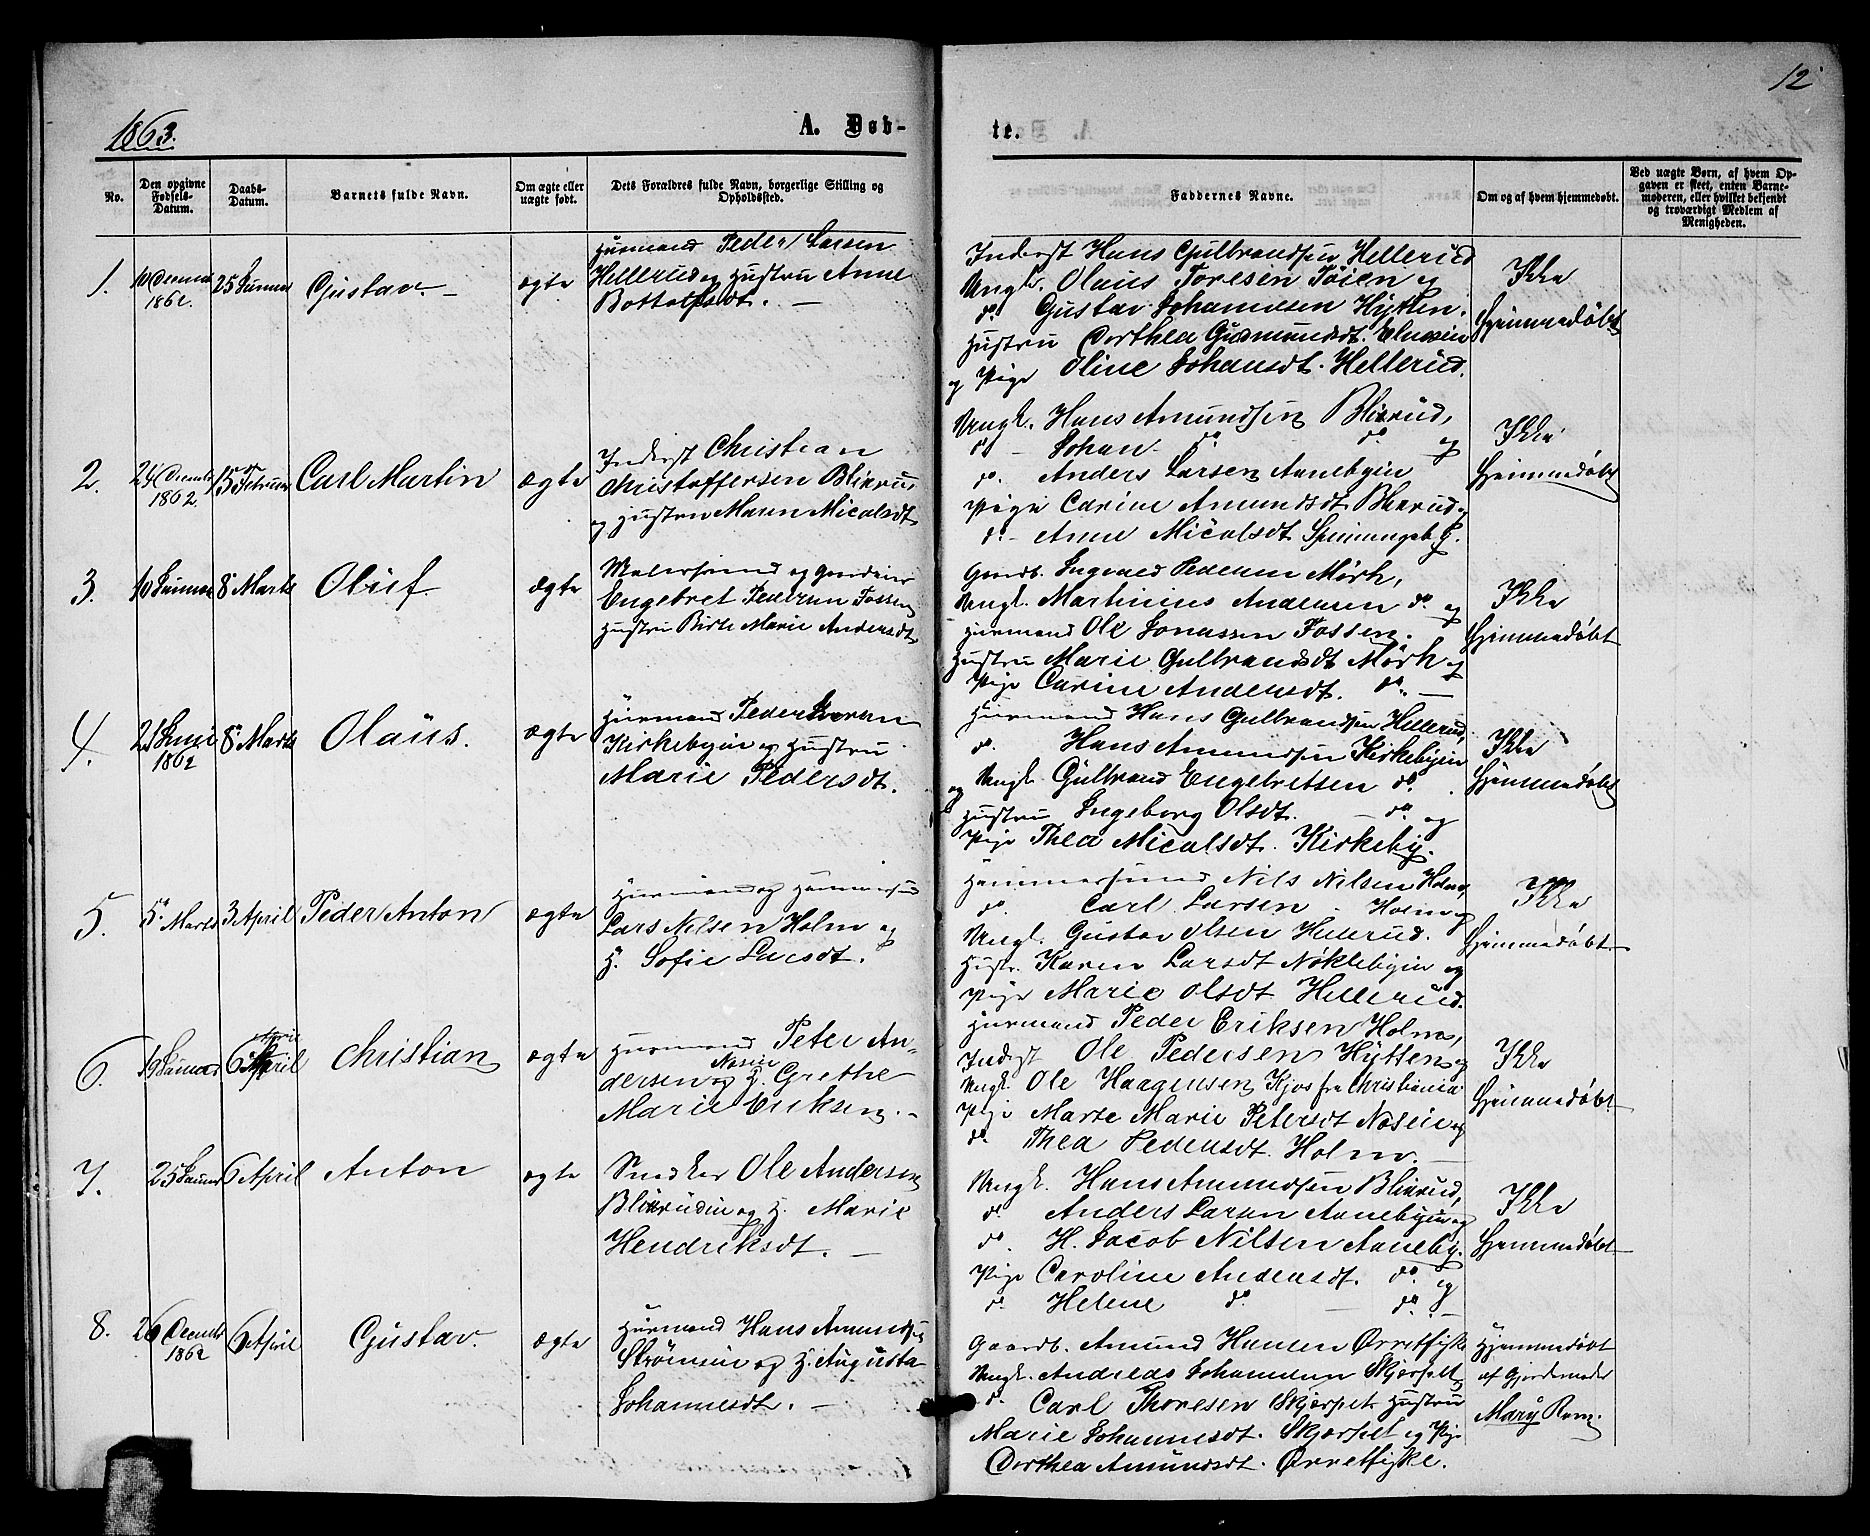 12
1863.
A. Døb-
te.
No.
Den opgivne Fødsels-Datum.
Daabs-Datum.
Barnets fulde Navn.
Om ægte eller uægte født.
Dets Forældres fulde Navn, borgerlige Stilling og Opholdssted.
Faddernes Navne.
Om og af hvem hjemmedøbt.
Ved uægte Børn, af hvem Opgaven er skeet, enten Barnemoderen, eller hvilket bekjendt og troværdigt Medlem af Menigheden.
1.
1862.
Gustav. -
ægte
Huusmand Peder Larsen
Hellerud og Hustru Anne
Bottolfsdt. -
Inderst Hans Gulbrandsen Hellerud
Ungk. Olaus Toresen Töien og
do. Gustav Johannesen Hytten.
Hustru Dorthea Gudmundsdt.
og Pige Oline Johansdt. Hellerud.
Ikke
Hjemmedøbt
2.
24 Decembr
1862.
15 Februar
Carl Martin
ægte
Inderst Christian
Christoffersen Blixrud,
og Hustru Maren Micalsdt
Ungk. Hans Amundsen Blixrud,
do - Johan do. do. og
do. Anders Larsen Aanebyin
Pige Carine Amundsdt Blixrud og
do. - Anne Micalsdt
Ikke
Hjemmedøbt
3.
10 Januar
8 Marts
Oluf
ægte
Engebret Pedersen Fossen og
Hustru Birte Marie Andersdt
Gaardb. Ingvald Pedersen Mörk,
Ungk. Martinius Andersen do. og
Huusmand Ole Jonassen Fossen.
Hustru Marie Gulbrandsdt Mörk og
Pige Carine Andersdt. do. -
Ikke
Hjemmedøbt
4.
1862
8 Marts
Olaus.
ægte
Huusmand Peder
Kirkebyin og Hustru
Marie Pedersdt.
Huusmand Hans Gulbrandsen Hellerud,
do. Hans Amundsen Kirkebyin
og Ungk. Gulbrand Engebretsen do.
Hustru Ingeborg Olsdt. - do. og
Pige Thea Micalsdt. Kirkeby.
Ikke
Hjemmedøbt
5.
5 Marts
3 April
Peder Anton
ægte
Huusmand og Hammersmed
Lars Nilsen Holm og
H. Sofie Larsdt.
Hammersmed Nils Nilsen Holm,
do. Carl Larsen - Holm og
Ungk. Gustav Olsen Hellerud.
Hustr. Karen Larsdt Nöklebyin og
Pige Marie Olsdt Hellerud.
Ikke
Hjemmedøbt
6.
19 Januar
April
6 April
Christian
ægte
Huusmand Peter An-
Nosin
dersen og H. Grethe
Marie Eriksen. -
Huusmand Peder Eriksen Holm,
Inderst Ole Pedersen Hytten og
Ungk. Ole Haagensen Kjos fra Christiania
Pige Marte Marie Petersdt Nosin og
do. Thea Pedersdt. Holm. -
Ikke
Hjemmedøbt
7.
25 Januar
6 April
Anton
ægte
Snedker Ole Andersen
Blixrudin og H. Marie
Hendriksdt. -
Ungk. Hans Amundsen Blixrud,
do. Anders Larsen Aanebyin og
do. H. Jacob Nilsen Aaneby.
Pige Caroline Andersdt. do. og
do. Helene do. - do. -
Ikke
Hjemmedøbt
8.
26 Decembr
1862
6 April
Gustav.
ægte
Huusmand Hans Amundsen
Strömin og H. Augusta
Johannesdt. -
Gaardb. Amund Hansen Ørretfiske
Ungk. Andreas Johannesen Skjærpet
do. Carl Thoresen Skjærpet Hustru
Marie Johannesdt. Skjærpet og Pige
Dorthea Amundsdt. Ørretfiske.
Hjemmedøbt
af Gjordemoder
Mary